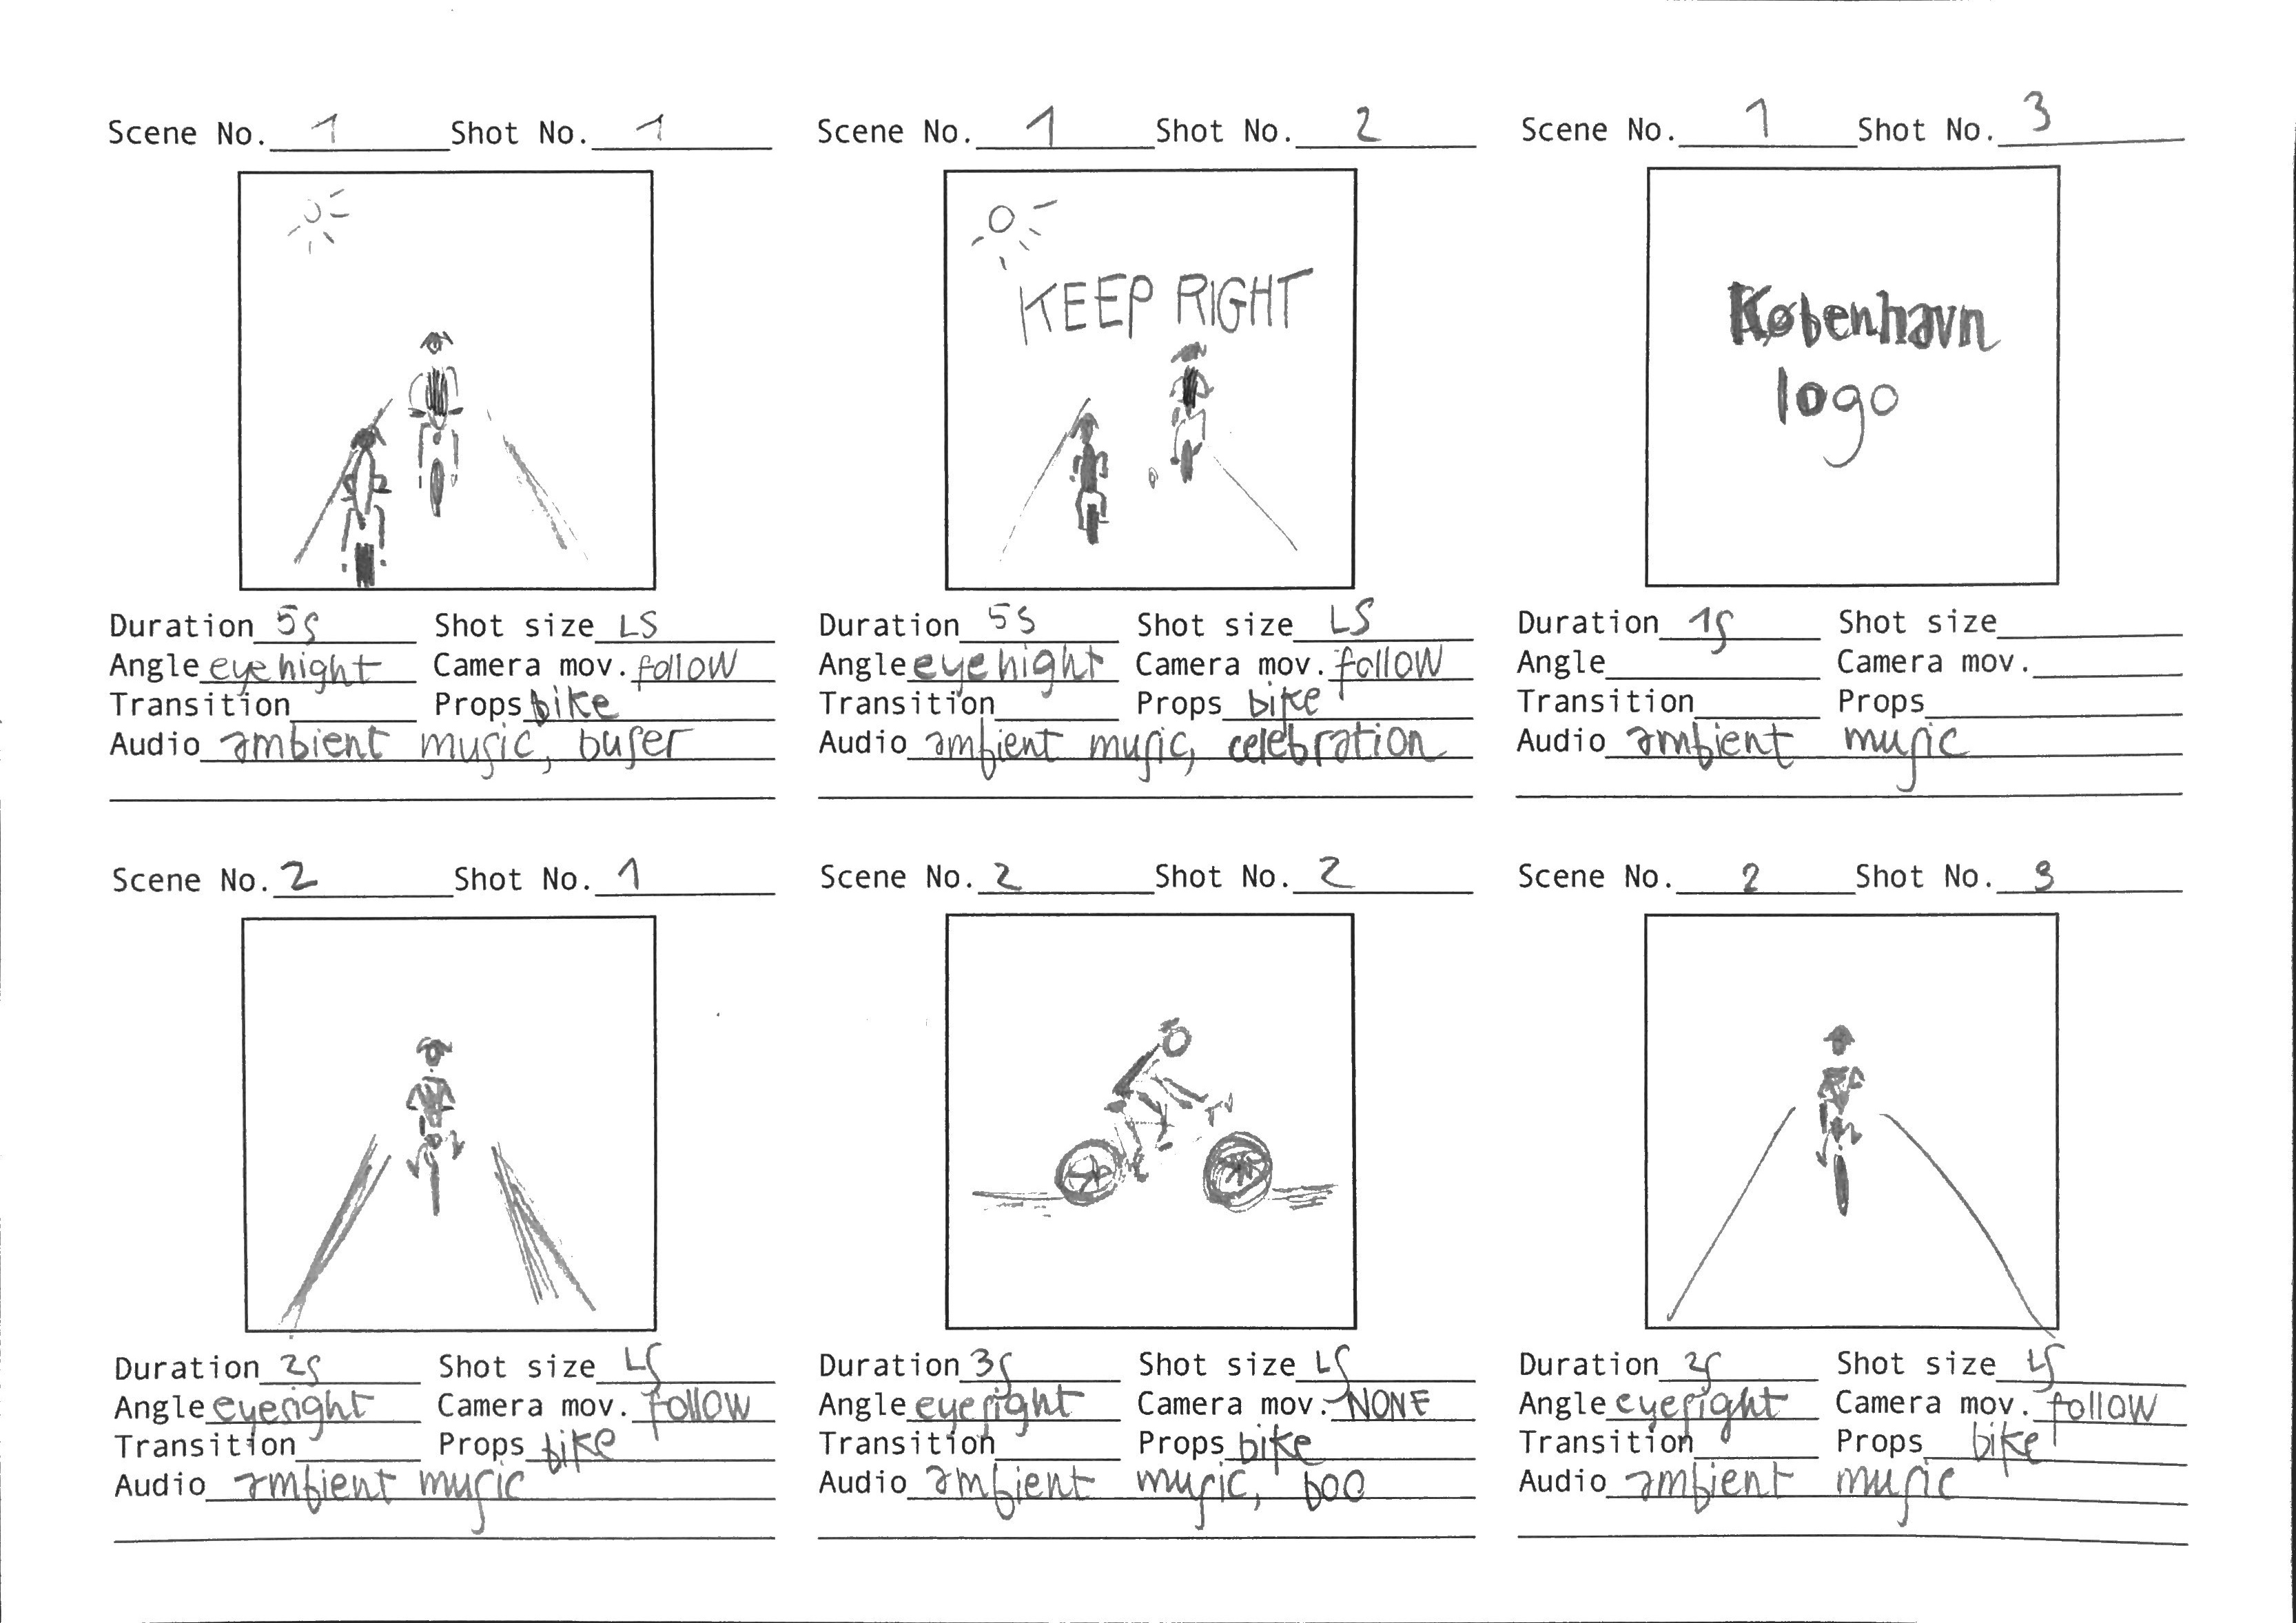 Scene No. 1 Shot No. 1
Duration 5s Shot size LS
Angle eye hight Camera mov. follow
Transition Props bike
Audio ambient music, buser
Scene No. 1 Shot No. 2
KEEP RIGHT
Duration 5s Shot size LS
Angle eye hight Camera mov. follow
Transition Props bike
Audio ambient music, celebration
Scene No. 1 Shot No. 3
København
logo
Duration 1s Shot size
Angle Camera mov.
Transition Props
Audio ambient music
Scene No. 2 Shot No. 1
Duration 2s Shot size LS
Angle eyesight Camera mov. follow
Transition Props bike
Audio ambient music
Scene No. 2 Shot No. 2
Duration 3s Shot size LS
Angle eyesight Camera mov. NONE
Transition Props bike
Audio ambient music, boo
Scene No. 2 Shot No. 3
Duration 2s Shot size LS
Angle eyesight Camera mov. follow
Transition Props bike
Audio ambient music